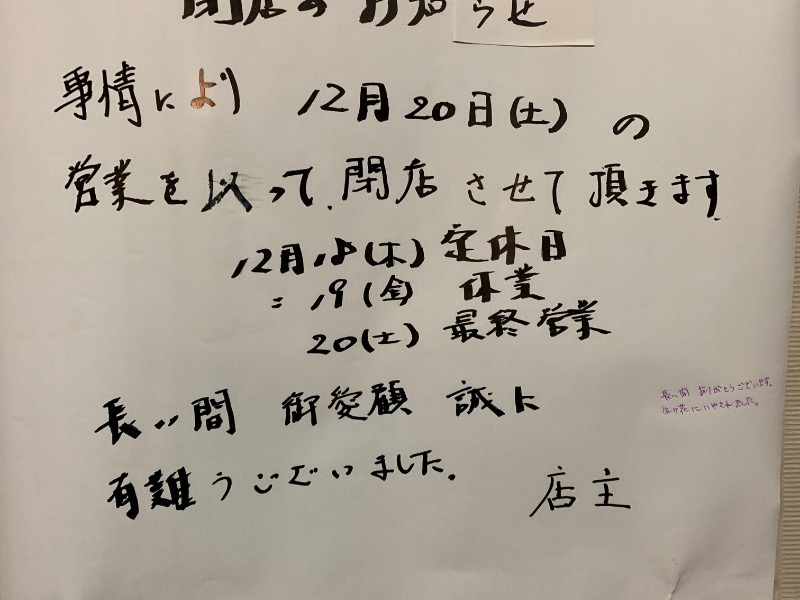 閉店のお知らせ
事情により 12月20日(土)の
営業を以って、閉店させて頂きます
12月18(木)定休日
〃 19(金) 休業
20(土)最終営業
長い間 御愛顧 誠に
有難うございました.
店主
長い間 ありがとうございます。
はり花にいやされました。